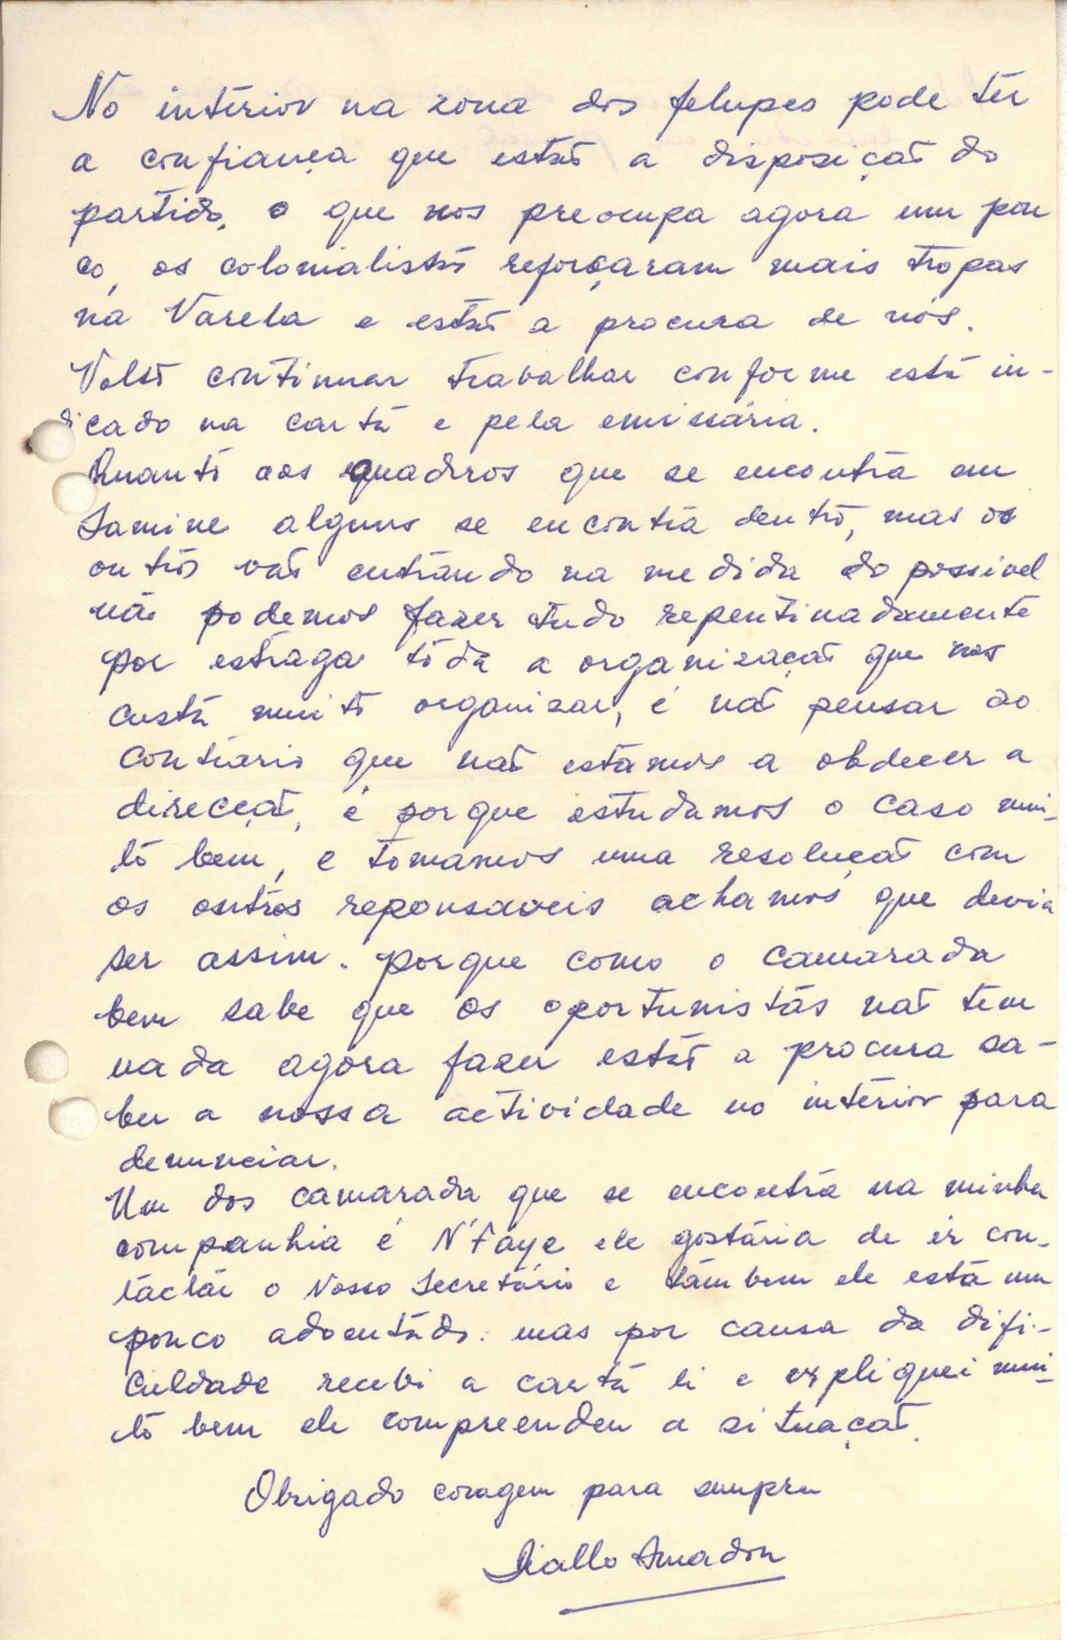 No intérior na zona dos felupes pode têr
a confiança que estão a disposição do
partido, o que nos preocupa agora um pou
co, os colonialistas reforçaram mais tropas
na Varela e estão a procura de nós.
Volto continuar trabalhar conforme está in-
dicado na carta e pela emissária.
Quanto aos quadros que se encontra em
Samine alguns se encontra dentro, mas os
outros vão entrando na medida do possivel
não podemos fazer tudo repentinadamente
por estraga tôda a organização que nos
custa muito organizar, é não pensar ao
contrario que não estamos a obdecer a
direcção, é porque estudamos o caso mui-
to bem, e tomamos uma resolução com
os outros reponsaveis achamos que devia
ser assim. porque como o camarada
bem sabe que os oportunistas não têm
nada agora fazer estão a procura sa-
ber a nossa actividade no intérior para
denunciar.
Um dos camarada que se encontra na minha
companhia é N'Faye ele gostária de ir con-
táctár o Nosso Secretário e támbem ele está um
pouco adoentado. mas por causa da difi-
culdade recebi a carta li e expliquei mui-
to bem ele compreendeu a situação.
Obrigado coragem para sempre
Diallo Amadou